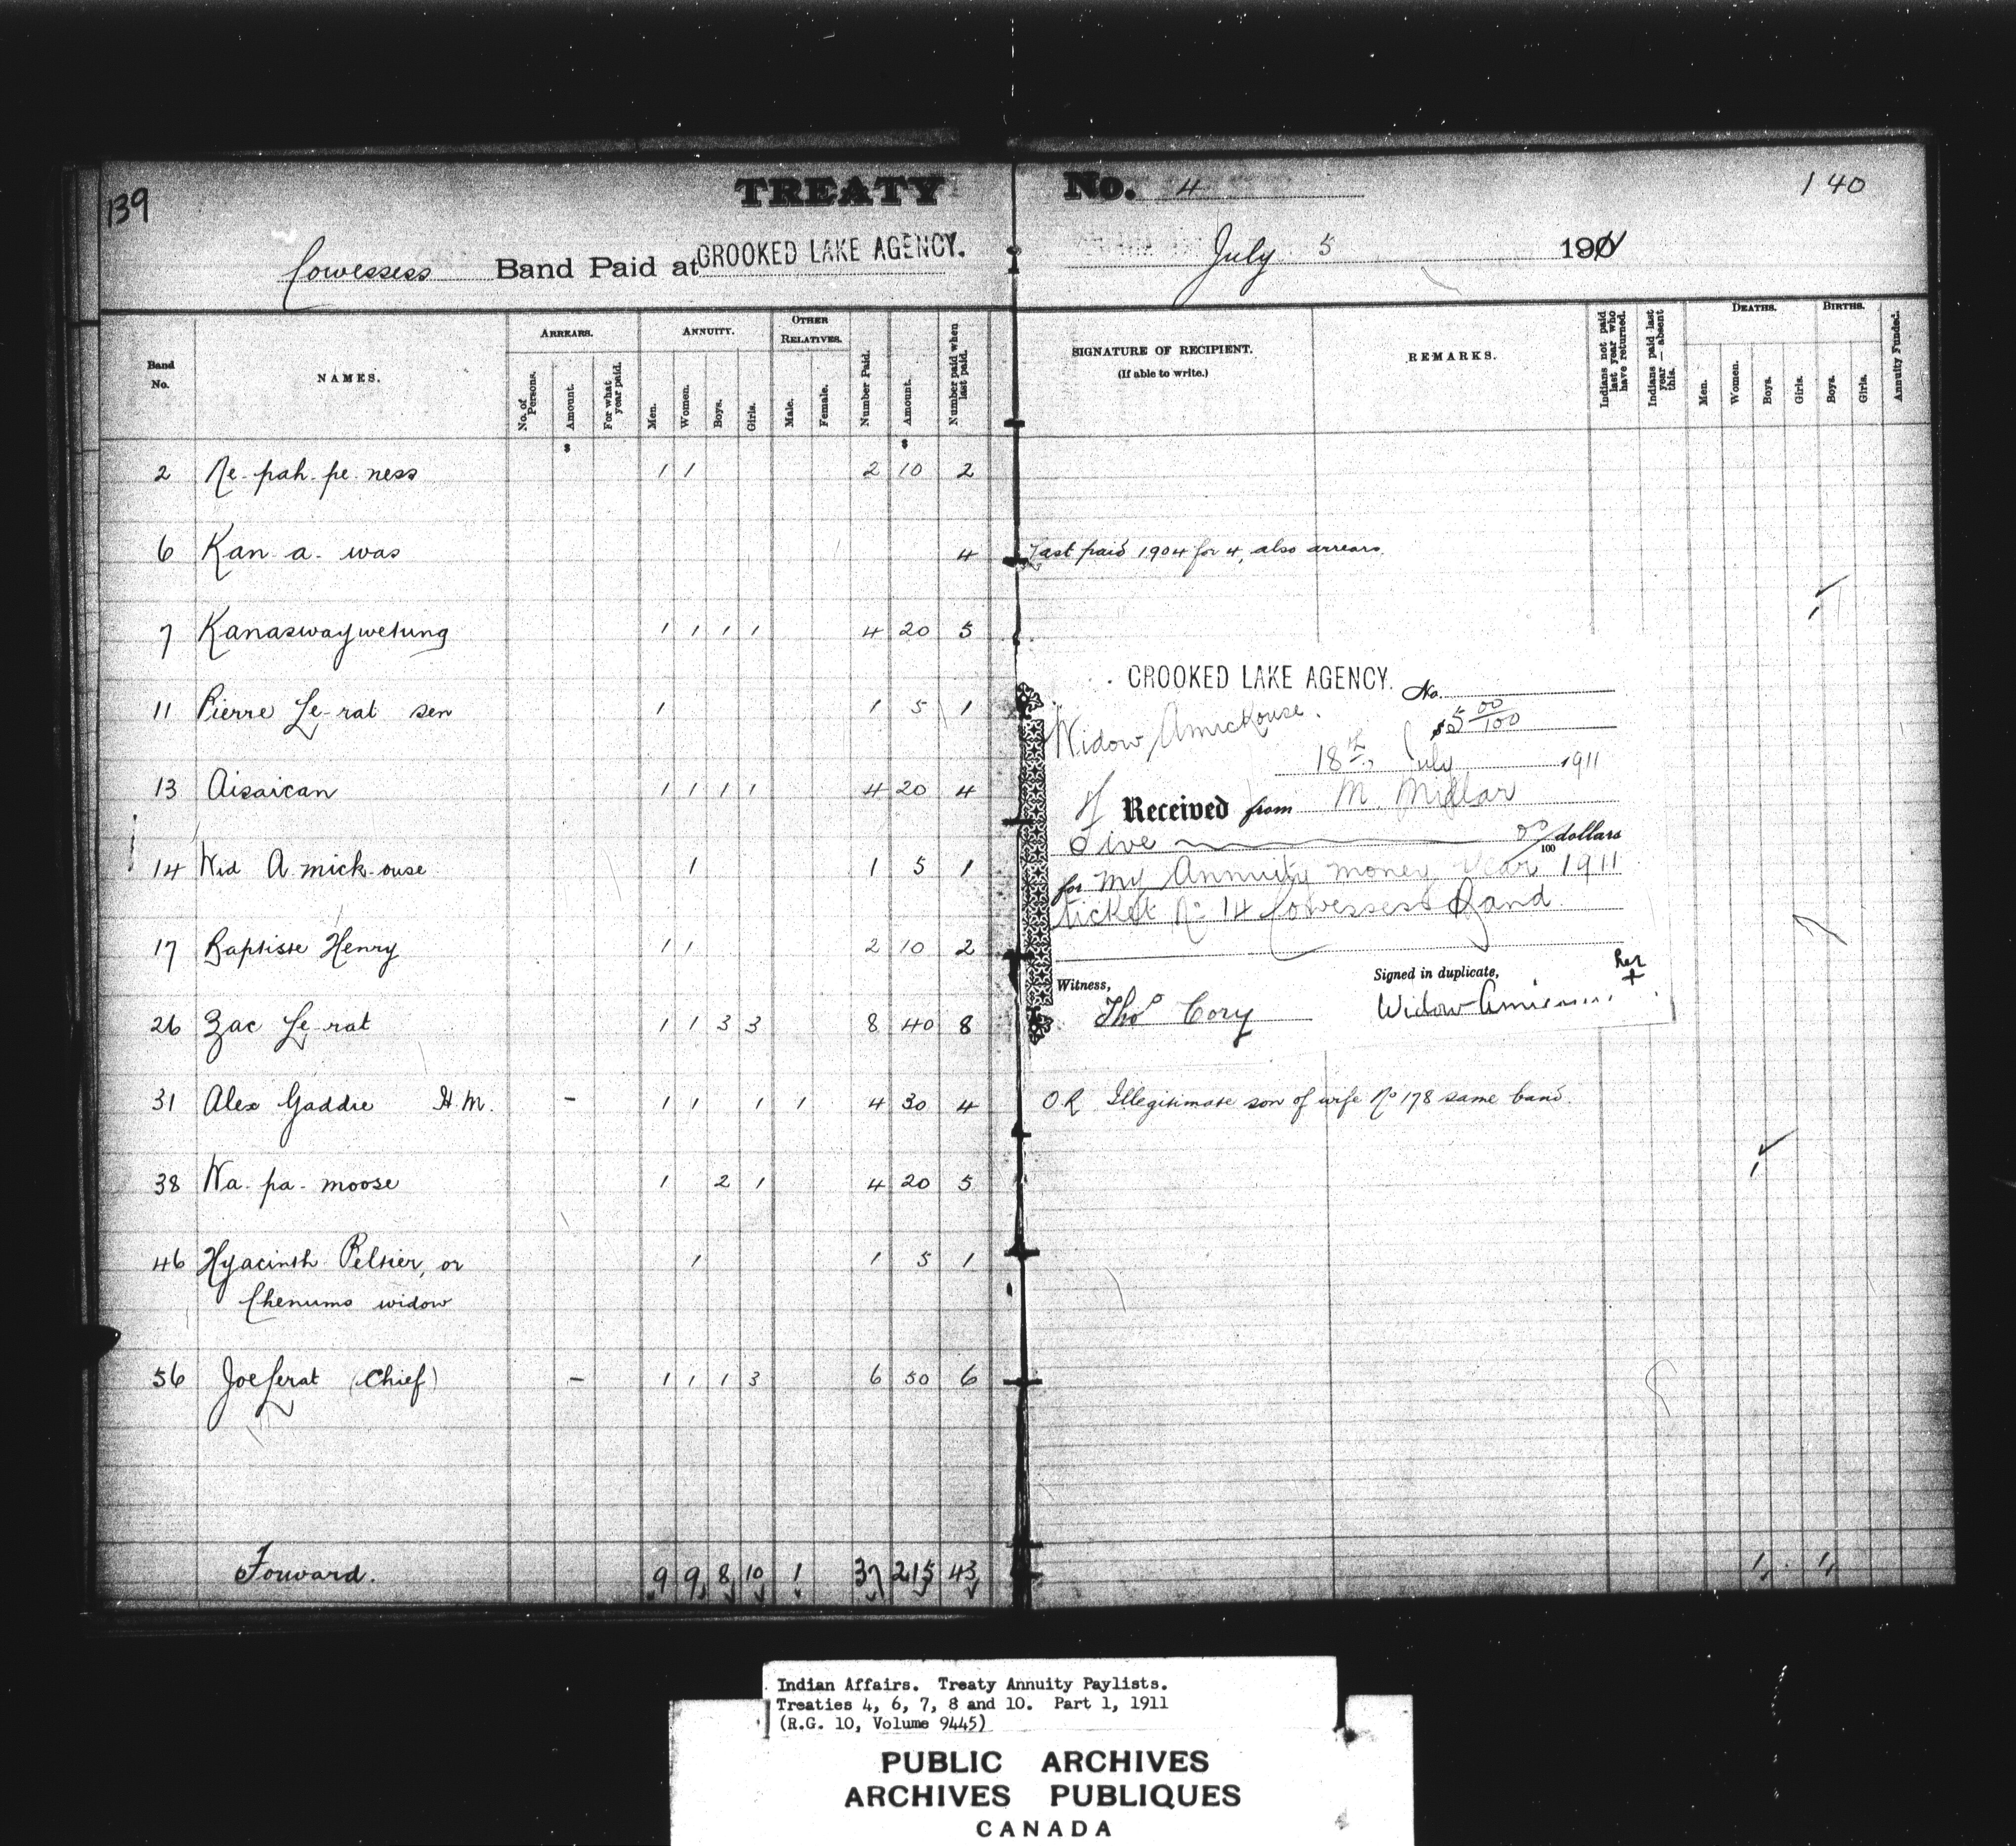 139
TREATY No. 4
140
Cowessess Band Paid at CROOKED LAKE AGENCY. July 5 1901
Band No.
NAMES.
ARREARS.
No. of Persons.
Amount.
For what year paid.
ANNUITY.
Men.
Women.
Boys.
Girls.
OTHER RELATIVES.
Male.
Female.
Number Paid.
Amount.
Number paid when last paid.
SIGNATURE OF RECIPIENT.
(If able to write.)
REMARKS.
Indians not paid last year who have returned.
Indians paid last year — absent this.
DEATHS.
Men.
Women.
Boys.
Girls.
BIRTHS.
Boys.
Girls.
Annuity Funded.
$ $
2 Ne-pah-pe-ness 1 1 2 10 2
6 Kan-a-was 4 Last paid 1904 for 4, also arrears.
7 Kanaswaywetung 1 1 1 1 4 20 5 1
11 Pierre Le-rat sen 1 1 5 1
13 Aisaican 1 1 1 1 4 20 4
14 Wid A-mick-ouse 1 1 5 1
17 Baptiste Henry 1 1 2 10 2
26 Zac Le-rat 1 1 3 3 8 40 8
31 Alex Gaddie H.M. – 1 1 1 1 4 30 4 O.R Illegitimate son of wife No 178 same band.
38 Wa-pa-moose 1 2 1 4 20 5 1
46 Hyacinth Peltier, or 1 1 5 1
Chenums widow
56 Joe Lerat (Chief) – 1 1 1 3 6 50 6
Forward. 9 9 8 10 1 37 215 43 1 1
CROOKED LAKE AGENCY. No.
Widow Amickouse. $5 00/100
18th July 1911
Received from M. Millar
Five 00/100 dollars
for my Annuity money Year 1911
ticket No 14 Cowessess Band
Witness, Signed in duplicate, her
Thos Cory Widow +
Indian Affairs. Treaty Annuity Paylists.
Treaties 4, 6, 7, 8 and 10. Part 1, 1911
(R.G. 10, Volume 9445)
PUBLIC ARCHIVES
ARCHIVES PUBLIQUES
CANADA